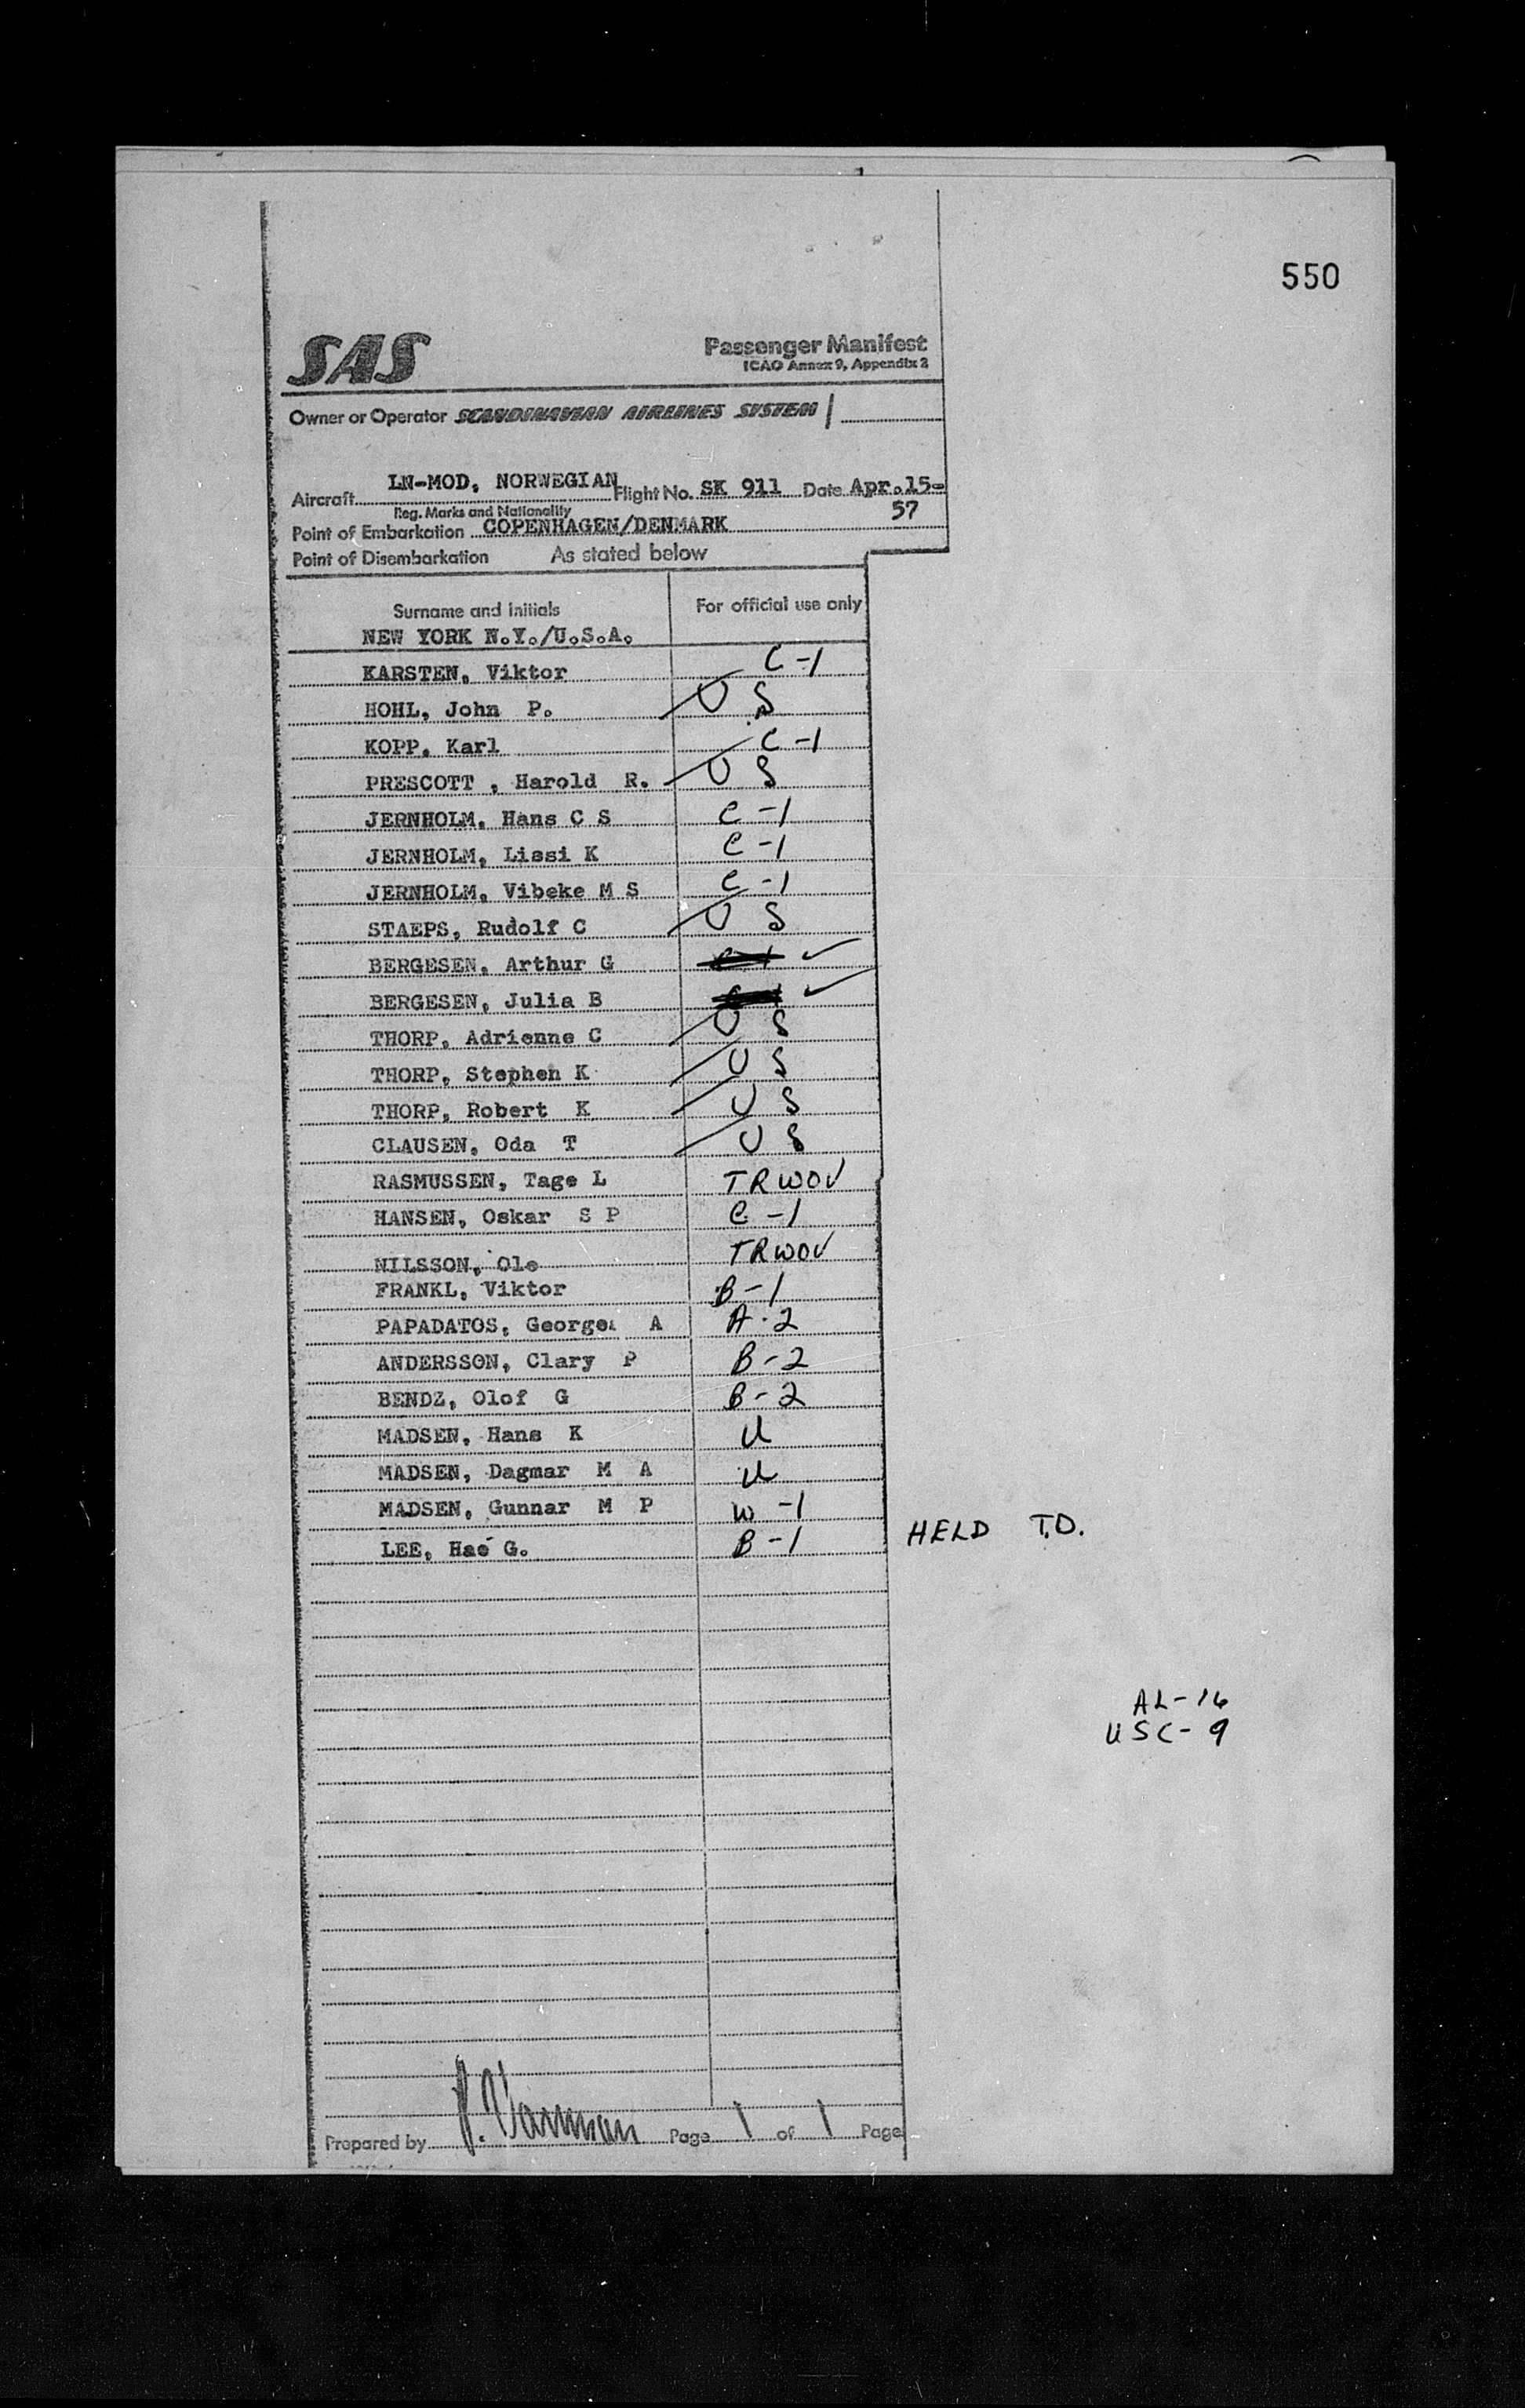 550
SAS Passenger Manifest
ICAO Annex 9, Appendix 2
Owner or Operator SCANDINAVIAN AIRLINES SYSTEM
Aircraft LN-MOD, NORWEGIAN Flight No. SK 911 Date Apr.15-
57
Reg. Marks and Nationality
Point of Embarkation COPENHAGEN/DENMARK
Point of Disembarkation As stated below
Surname and Initials For official use only
NEW YORK N.Y./U.S.A.
KARSTEN, Viktor C-1
HOHL, John P. U S
KOPP, Karl C-1
PRESCOTT , Harold R. U S
JERNHOLM, Hans C S C-1
JERNHOLM, Lissi K C-1
JERNHOLM, Vibeke M S C-1
STAEPS, Rudolf C U S
BERGESEN, Arthur G ✓
BERGESEN, Julia B ✓
THORP, Adrienne C U S
THORP, Stephen K U S
THORP, Robert K U S
CLAUSEN, Oda T U S
RASMUSSEN, Tage L TRWOV
HANSEN, Oskar S P C-1
NILSSON, Ole TRWOV
FRANKL, Viktor B-1
PAPADATOS, George A A-2
ANDERSSON, Clary P B-2
BENDZ, Olof G B-2
MADSEN, Hans K U
MADSEN, Dagmar M A U
MADSEN, Gunnar M P W-1
HELD T.D.
LEE, Hae G. B-1
AL-16
USC-9
Prepared by Page 1 of 1 Page